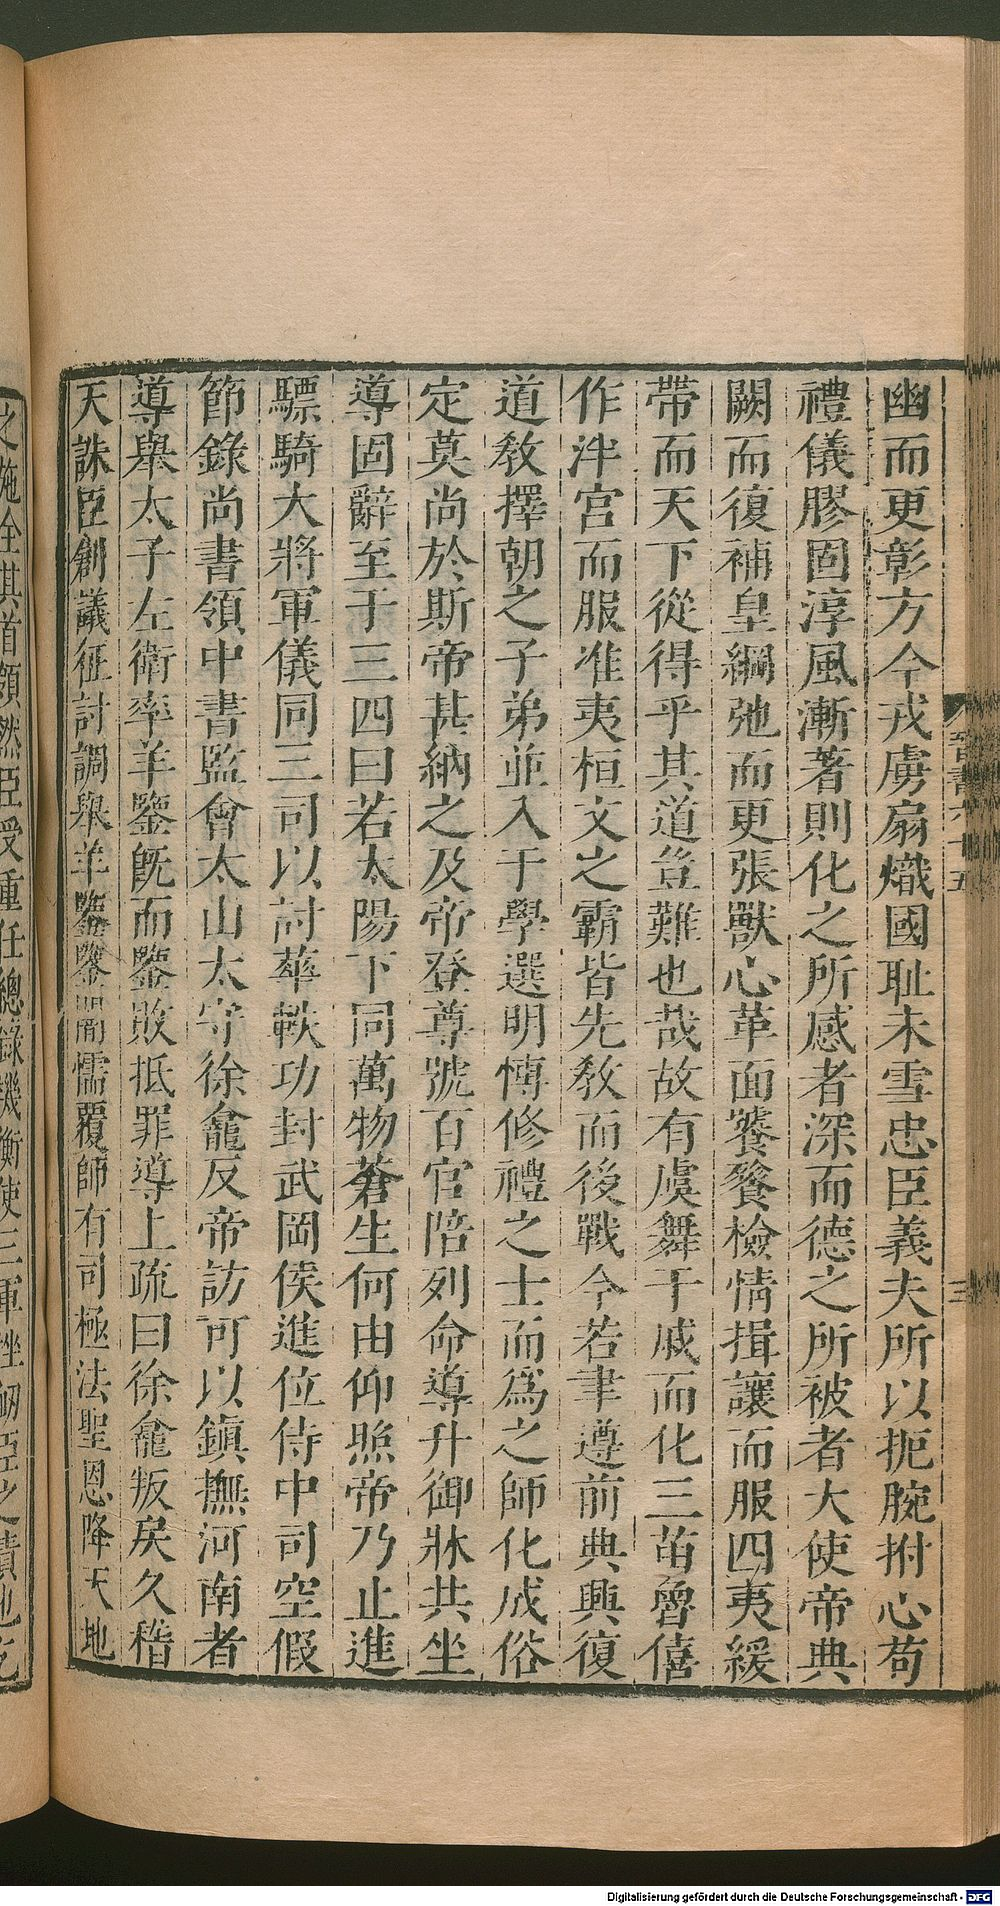 晉書六十五
三
幽而更彰方今戎虜扇熾國耻未雪忠臣義夫所以扼腕拊心苟
禮儀膠固淳風漸著則化之所感者深而德之所被者大使帝典
闕而復補皇綱弛而更張獸心革面饕餮檢情揖讓而服四夷緩
帶而天下從得乎其道豈難也哉故有虞舞干戚而化三苗魯僖
作泮宮而服淮夷桓文之霸皆先教而後戰今若聿遵前典興復
道教擇朝之子弟並入于學選明博修禮之士而爲之師化成俗
定莫尚於斯帝甚納之及帝登尊號百官陪列命導升御牀共坐
導固辭至于三四曰若太陽下同萬物蒼生何由仰照帝乃止進
驃騎大將軍儀同三司以討華軼功封武岡侯進位侍中司空假
節錄尚書領中書監會太山太守徐龕反帝訪可以鎮撫河南者
導舉太子左衛率羊鑒旣而鑒敗抵罪導上疏曰徐龕叛戾久稽
天誅臣創議征討調舉羊鑒鑒闇懦覆師有司極法聖恩降天地
之施全其首領然臣受重任總錄機衡使三軍挫衂臣之責也乞
Digitalisierung gefördert durch die Deutsche Forschungsgemeinschaft - DFG